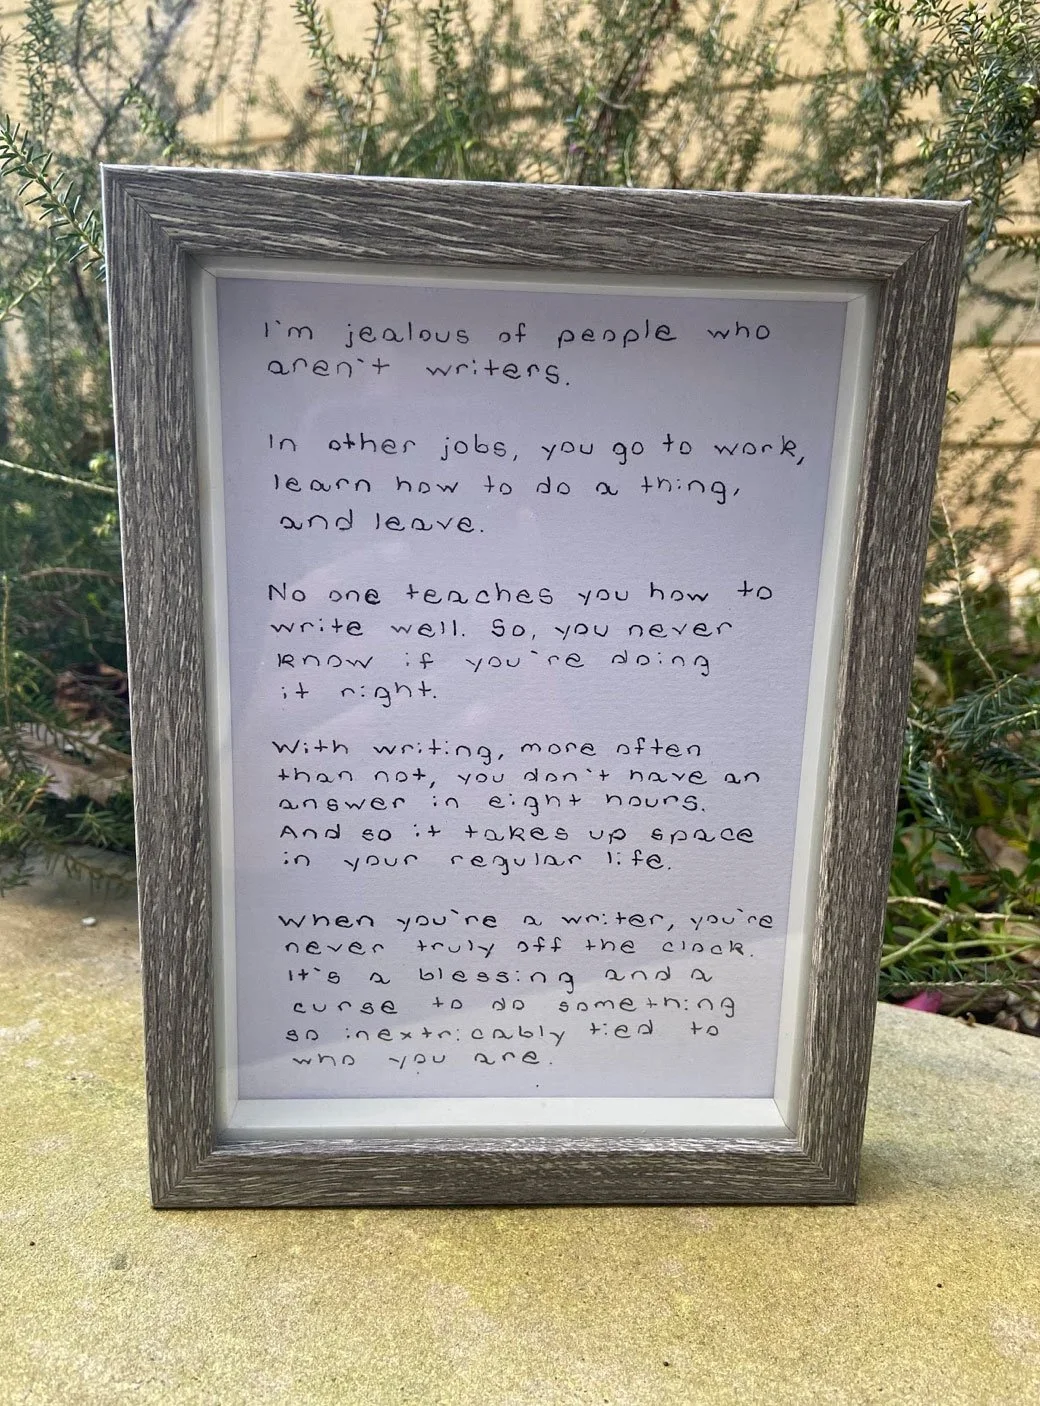 I'm jealous of people who
aren't writers.
In other jobs, you go to work,
learn how to do a thing,
and leave.
No one teaches you how to
write well. So, you never
know if you're doing
it right.
With writing, more often
than not, you don't have an
answer in eight hours.
And so it takes up space
in your regular life.
When you're a writer, you're
never truly off the clock.
It's a blessing and a
curse to do something
so inextricably tied to
who you are.